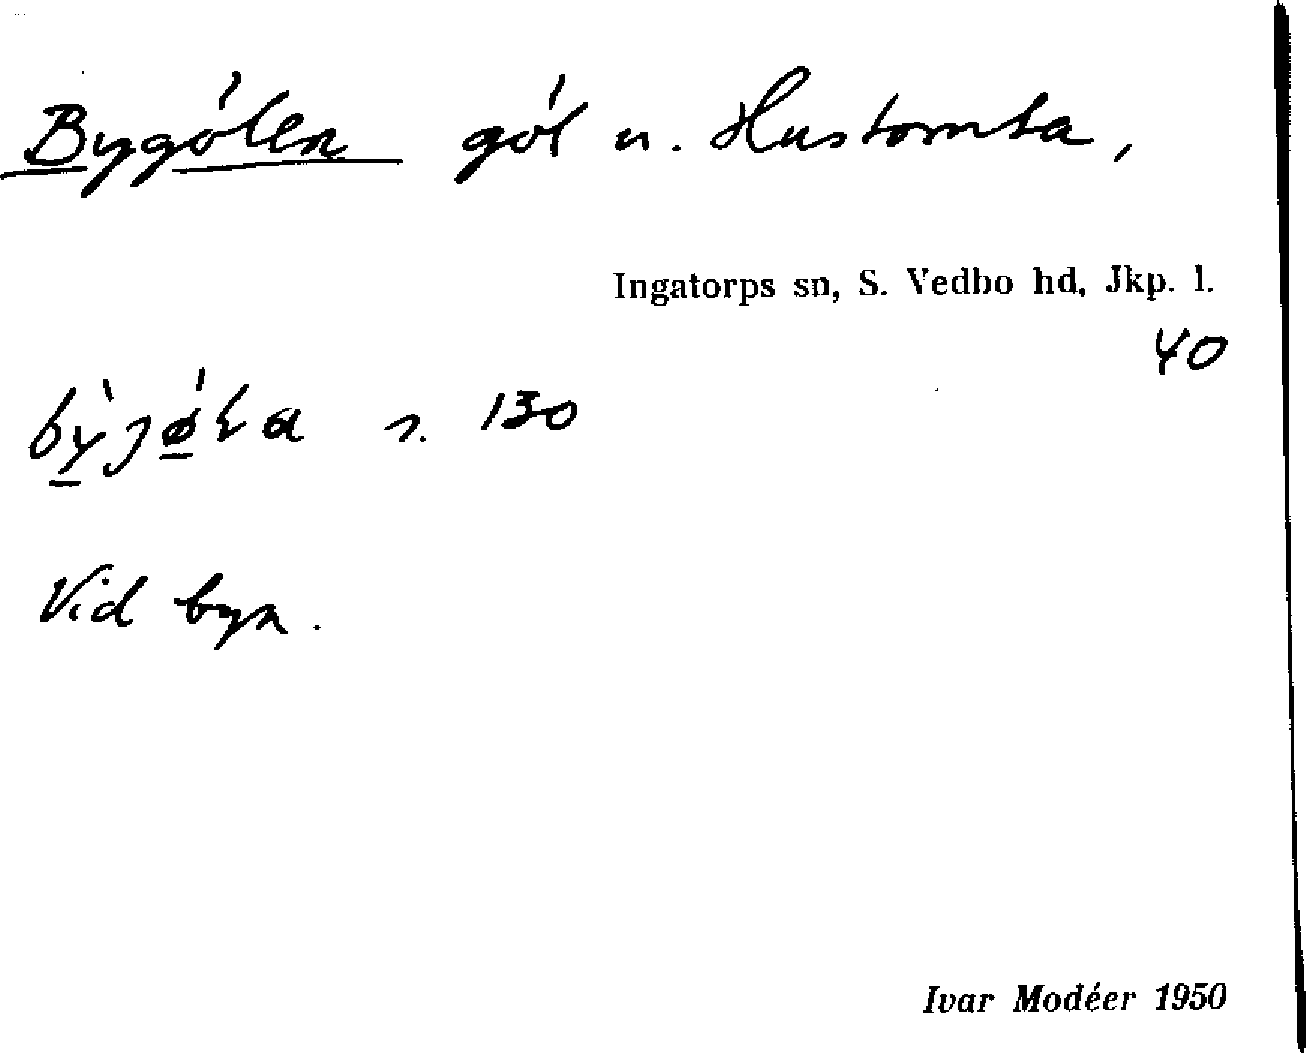 Bygölen göl u. Hustomta,
Ingatorps sn, S. Vedbo hd, Jkp. l.
40
130
Vid byn.
Ivar Modéer 1950